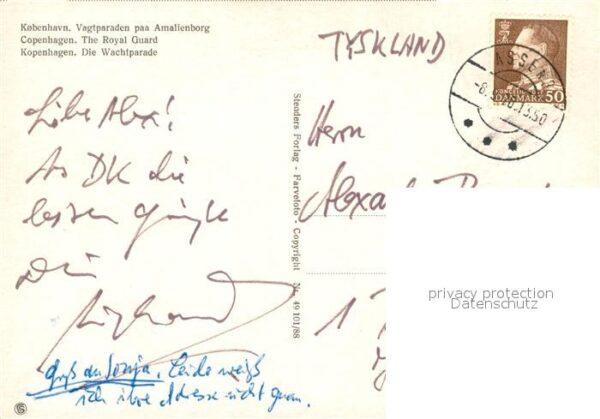 København. Vagtparaden paa Amalienborg
Copenhagen. The Royal Guard
Kopenhagen. Die Wachtparade
TYSKLAND
ASSENS
50
DANMARK
Liebe Alex!
Aus DK die
besten Grüße
Dein
Gruß an Sonja. Leider weiß
ich ihre Adresse nicht genau.
Stenders Forlag - Farvefoto - Copyright Nr. 49 101/88
Herrn
privacy protection
Datenschutz